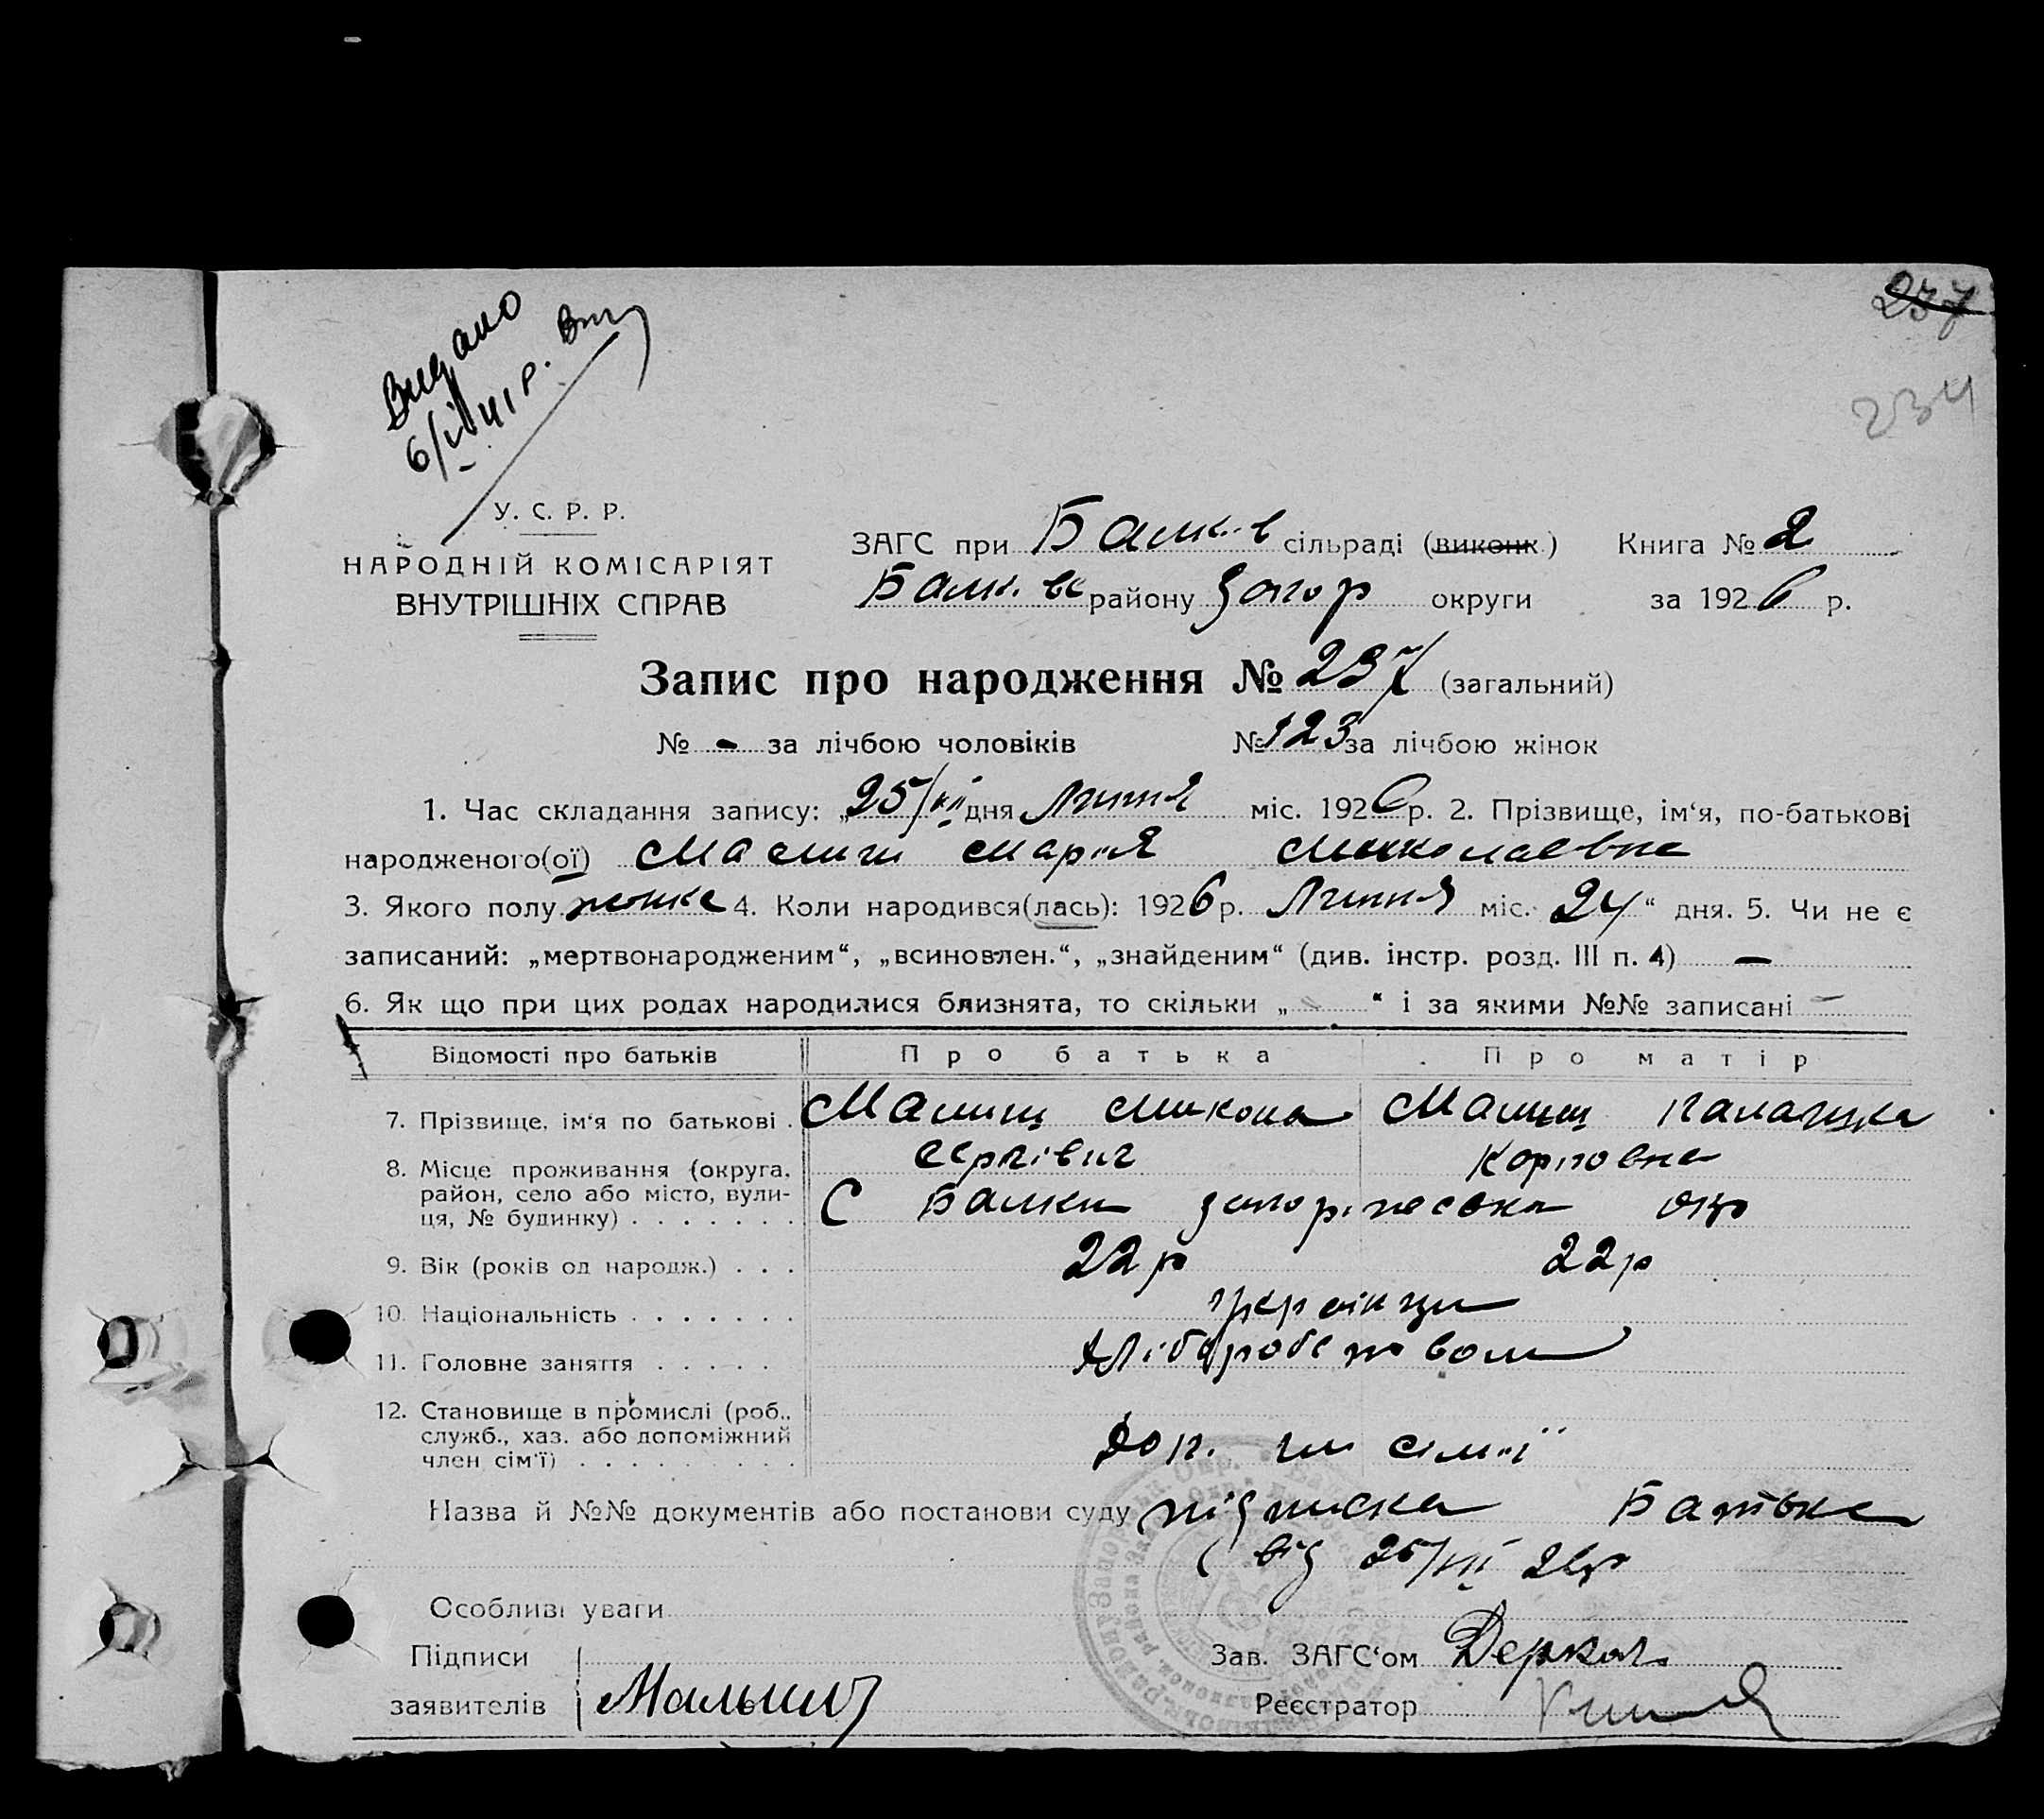 237
234
Видано
6/IV 41 р.
У. С. Р. Р.
НАРОДНІЙ КОМІСАРІЯТ
ВНУТРІШНІХ СПРАВ
ЗАГС при Балків сільраді (виконк.) Книга № 2
Балк. вс району Запор округи за 1926 р.
Запис про народження № 237 (загальний)
№ - за лічбою чоловіків № 123 за лічбою жінок
1. Час складання запису: „25/VII дня Липня міс. 1926 р. 2. Прізвище, ім‘я, по-батькові
народженого(ої) Марія Миколаевна
3. Якого полу жінка 4. Коли народився(лась): 1926 р. Липня міс. 24 “ дня. 5. Чи не є
записаний: „мертвонародженим“, „всиновлен.“, „знайденим“ (див. інстр. розд. III п. 4) —
6. Як що при цих родах народилися близнята, то скільки „ - “ і за якими №№ записані —
Відомості про батьків Про батька Про матір
7. Прізвище, ім‘я по батькові . Микола
Сергієвич Карповна
8. Місце проживання (округа,
район, село або місто, вули-
ця, № будинку) . . . . . . . С Балки Запоріжська окр
9. Вік (років од народж.) . . . 22 р 22 р
10. Національність . . . . . . . українци
11. Головне заняття . . . . . Хлібороб
12. Становище в промислі (роб.,
служб., хаз. або допоміжний
член сім‘ї) . . . . . . . . . Доп. чл сімії
Назва й №№ документів або постанови суду підписка Батька
від 25/VII 26р
Особливі уваги
Підписи Зав. ЗАГС‘ом Деркач
заявителів Реєстратор